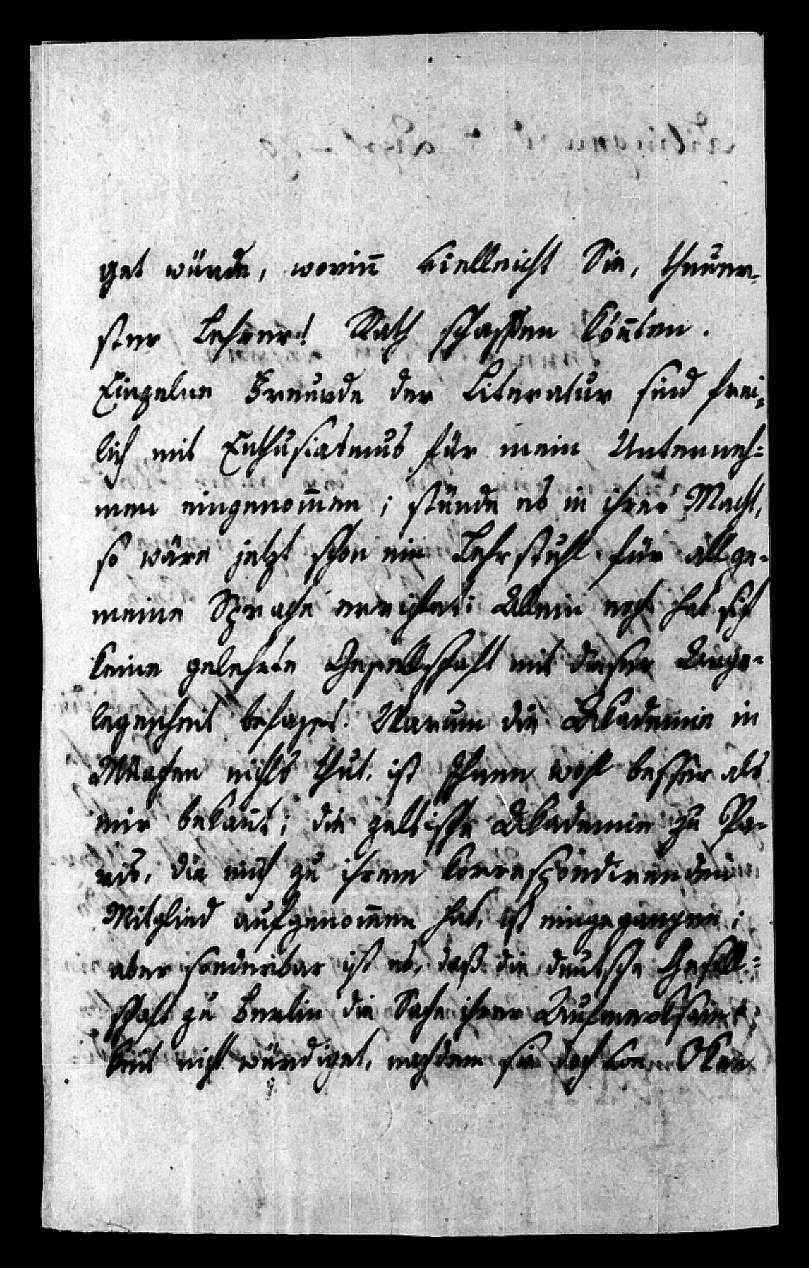 get würde, woriñ vielleicht Sie, theuer-
ster Lehrer! Rath schaffen köñten.
Einzelne Freunde der Literatur sind frei-
lich mit Enthusiasmus für mein Unterneh-
men eingenom̄en; stünde es in ihrer Macht,
so wäre jetzt schon ein Lehrstuhl für allge-
meine Sprache errichtet: Allein noch hat sich
keine gelehrte Gesellschaft mit dieser Ange-
legenheit befasset. Warum die Akademie in
München nichts thut, ist Ihnen wohl besser als
mir bekañt; die zeltische Akademie zu Pa-
ris, die mich zu ihrem korrespondirenden
Mitglied aufgenom̄en hat, ist eingegangen;
aber sonderbar ist es, daß die deutsche Gesell-
schaft zu Berlin die Sache ihrer Aufmerksam-
keit nicht würdiget, nachdem sie doch von Oken